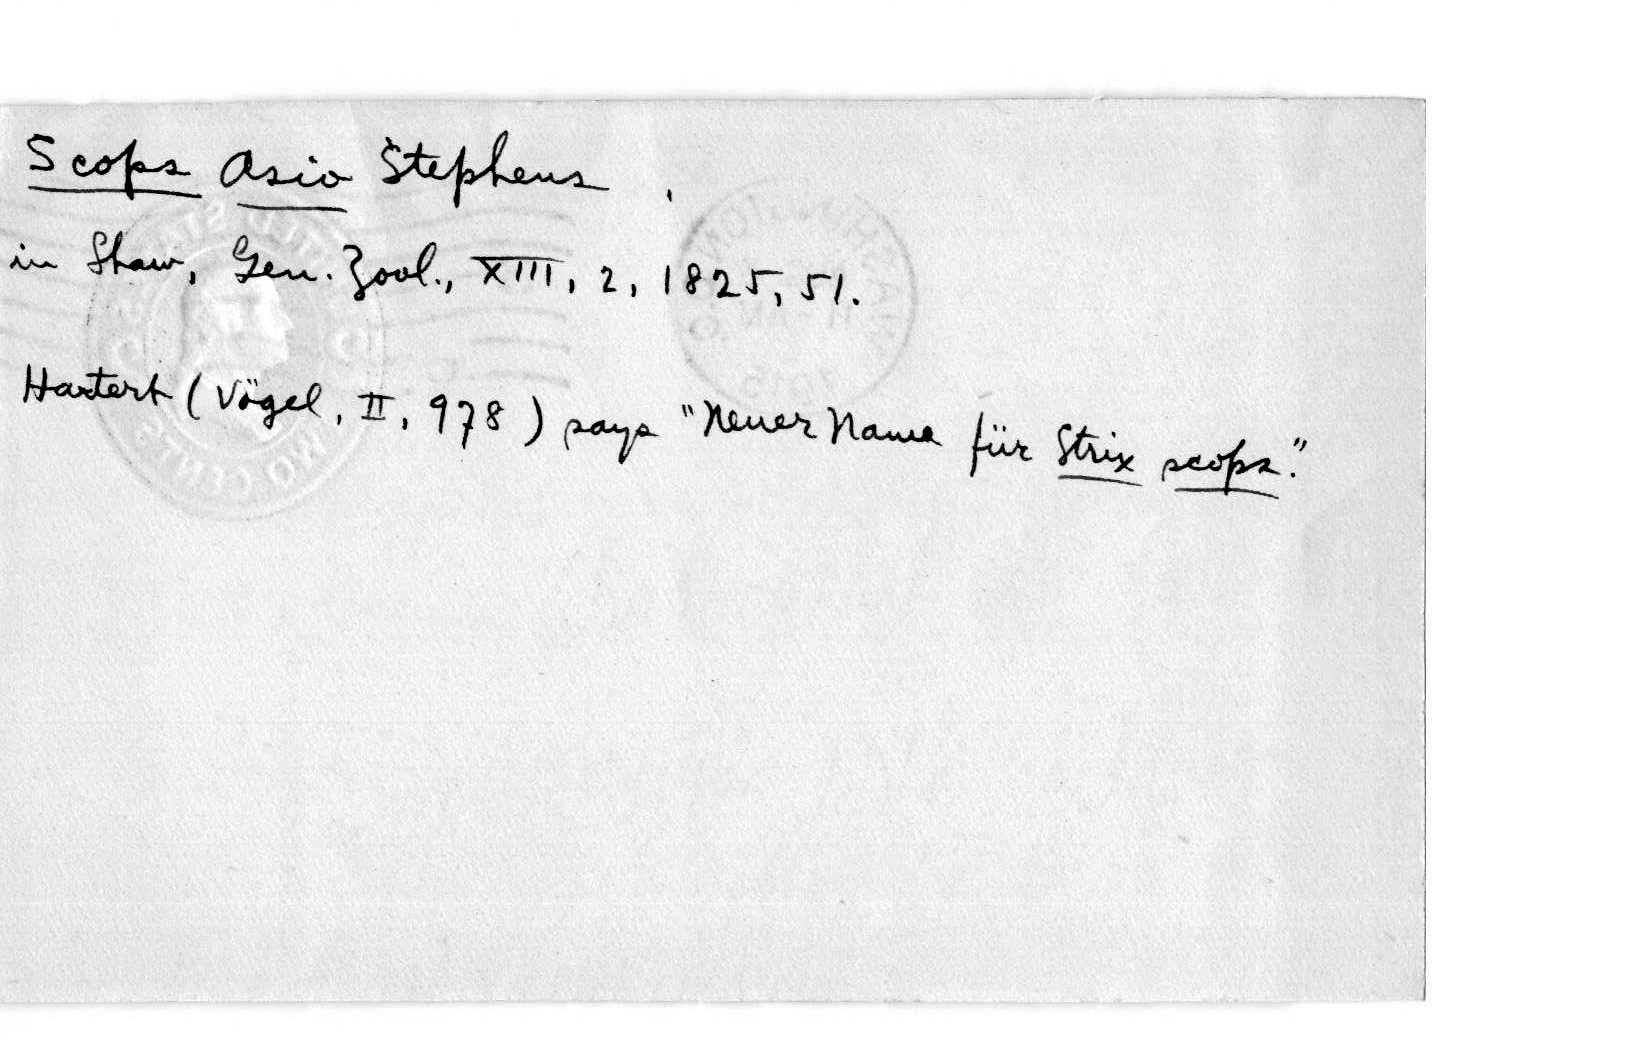 Scops Asio Stephens.
in Shaw, Gen. Zool., XIII, 2, 1825, 51.
Hartert (Vögel, II, 978) says "Neuer Name für Strix scops."